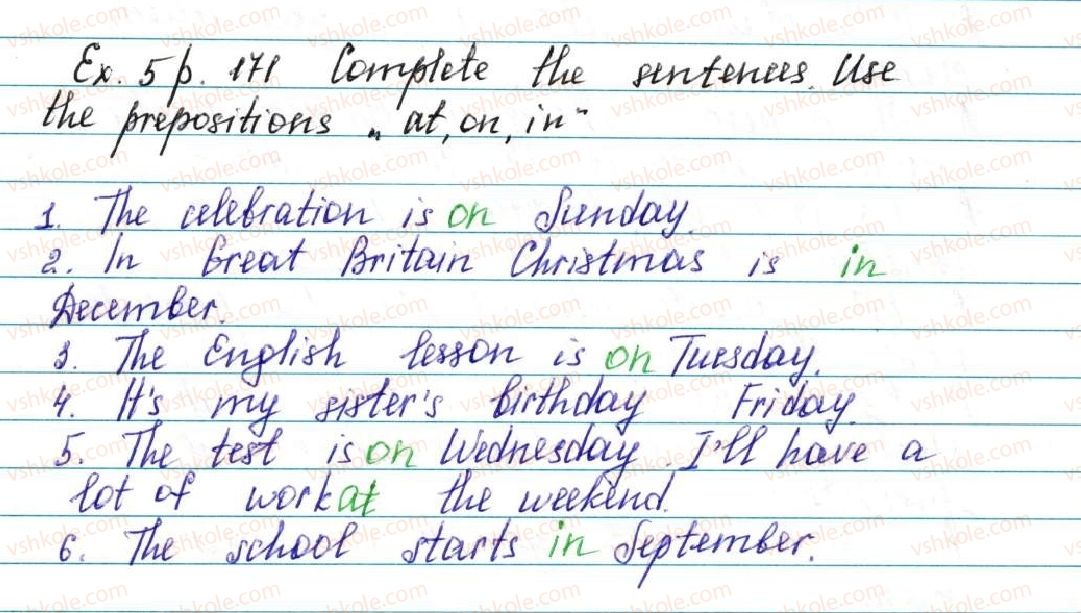 Ex. 5 p. 171 Complete the sentences. Use
the prepositions „at, on, in"
1. The celebration is on Sunday.
2. In Great Britain Christmas is in
December.
3. The English lesson is on Tuesday.
4. It's my sister's birthday Friday.
5. The test is on Wednesday. I'll have a
lot of work at the weekend.
6. The school starts in September.